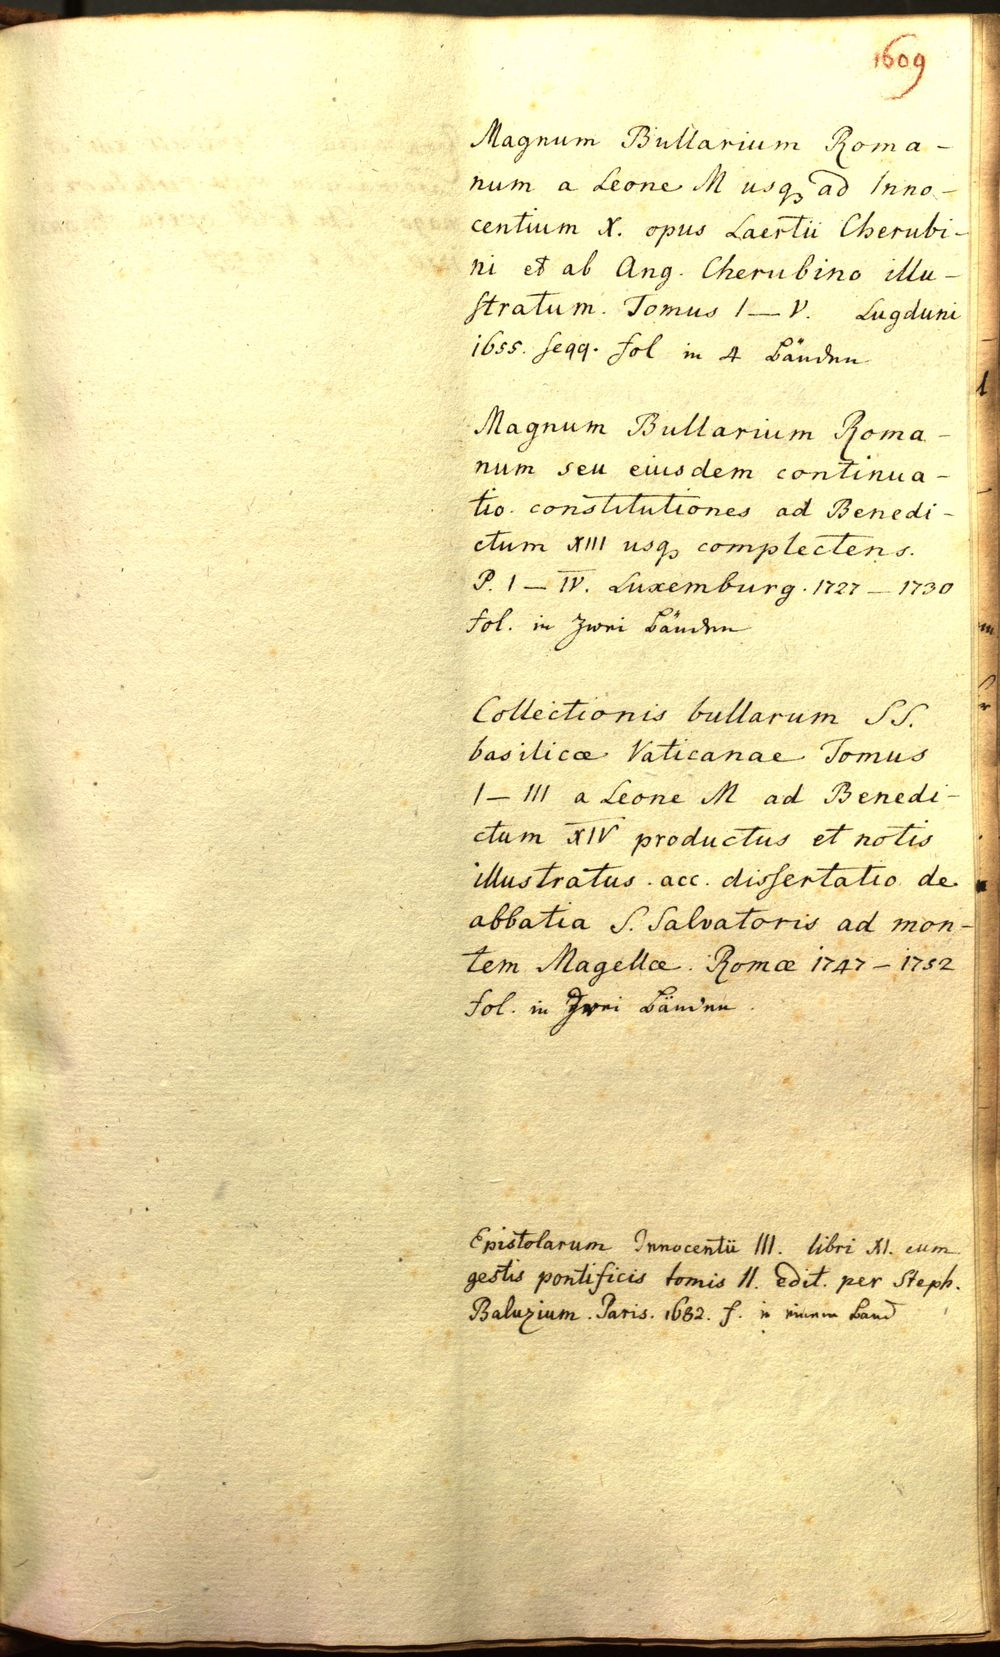 1609
Magnum Bullarium Roma-
num a Leone M usqꝫ ad Inno-
centium X. opus Laertii Cherubi-
ni et ab Ang. Cherubino illu-
stratum. Tomus I — V. Lugduni
1655. seqq. fol in 4 Bänden
Magnum Bullarium Roma-
num seu eiusdem continua-
tio constitutiones ad Benedi-
ctum XIII usqꝫ complectens.
P. I — IV. Luxemburg. 1727 — 1730
fol. in zwei Bänden
Collectionis bullarum SS.
basilicæ Vaticanae Tomus
I — III a Leone M ad Benedi-
ctum XIV productus et notis
illustratus. acc. dissertatio de
abbatia S. Salvatoris ad mon-
tem Magellæ. Romæ 1747 — 1752
fol. in zwei Bänden.
Epistolarum Innocentii III. libri XI. cum
gestis pontificis tomis II. edit. per Steph.
Baluzium. Paris. 1682. f. in einem Band